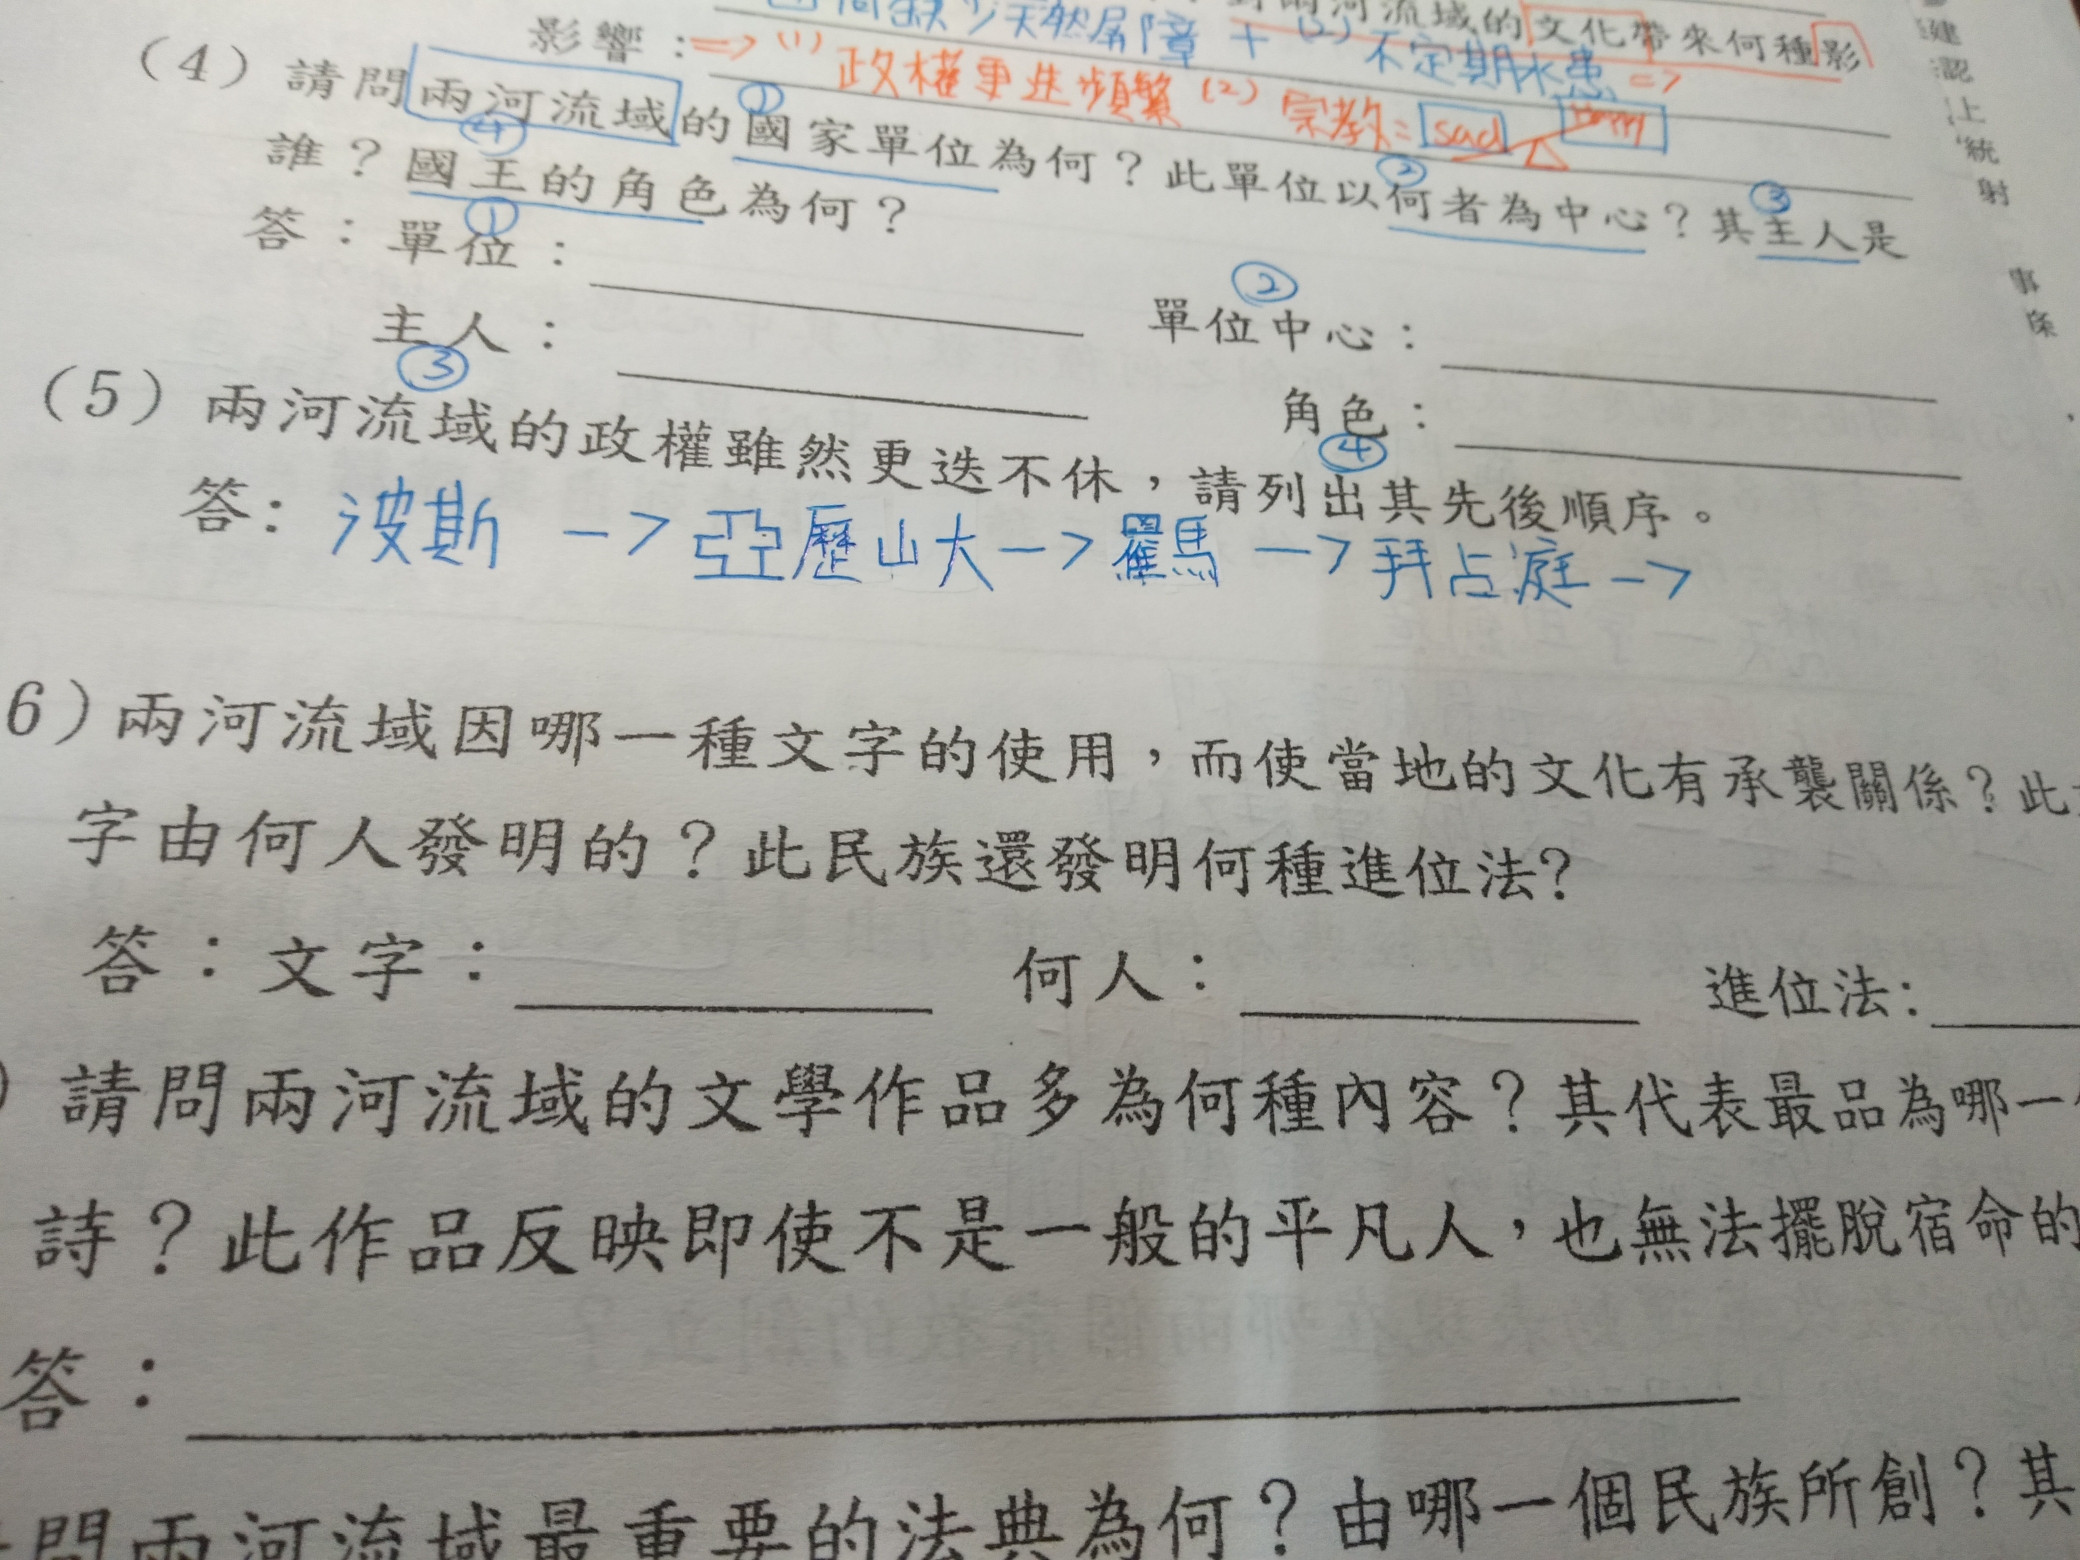 兩河流域的文化帶來何種影
缺少天然屏障 + (2) 不定期水患 =>
影響：=> (1) 政權更迭頻繁 (2) 宗教： sad happy
(4) 請問兩河流域的國家單位為何？此單位以何者為中心？其主人是
① ② ③
誰？國王的角色為何？
④
答：單位： 單位中心：
① ②
主人： 角色：
③ ④
(5) 兩河流域的政權雖然更迭不休，請列出其先後順序。
答：波斯 —> 亞歷山大 —> 羅馬 —> 拜占庭 —>
6) 兩河流域因哪一種文字的使用，而使當地的文化有承襲關係？此
字由何人發明的？此民族還發明何種進位法？
答：文字： 何人： 進位法：
) 請問兩河流域的文學作品多為何種內容？其代表最品為哪一
詩？此作品反映即使不是一般的平凡人，也無法擺脫宿命的
答：
問兩河流域最重要的法典為何？由哪一個民族所創？其
建
認
上
統
射
事